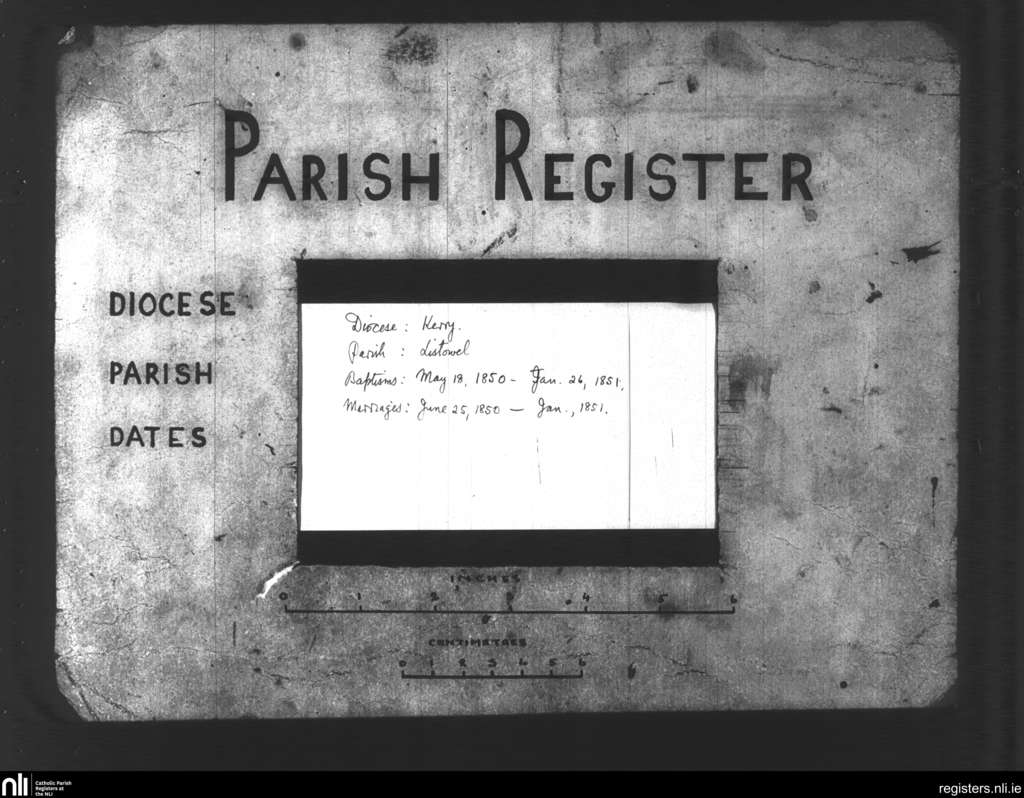 PARISH REGISTER
DIOCESE
PARISH
DATES
Diocese : Kerry.
Parish : Listowel
Baptisms : May 18, 1850 - Jan. 26, 1851.
Marriages : June 25, 1850 — Jan., 1851.
INCHES
0 1 2 3 4 5 6
CENTIMETRES
0 1 2 3 4 5 6
nli
Catholic Parish
Registers at
the NLI
registers.nli.ie